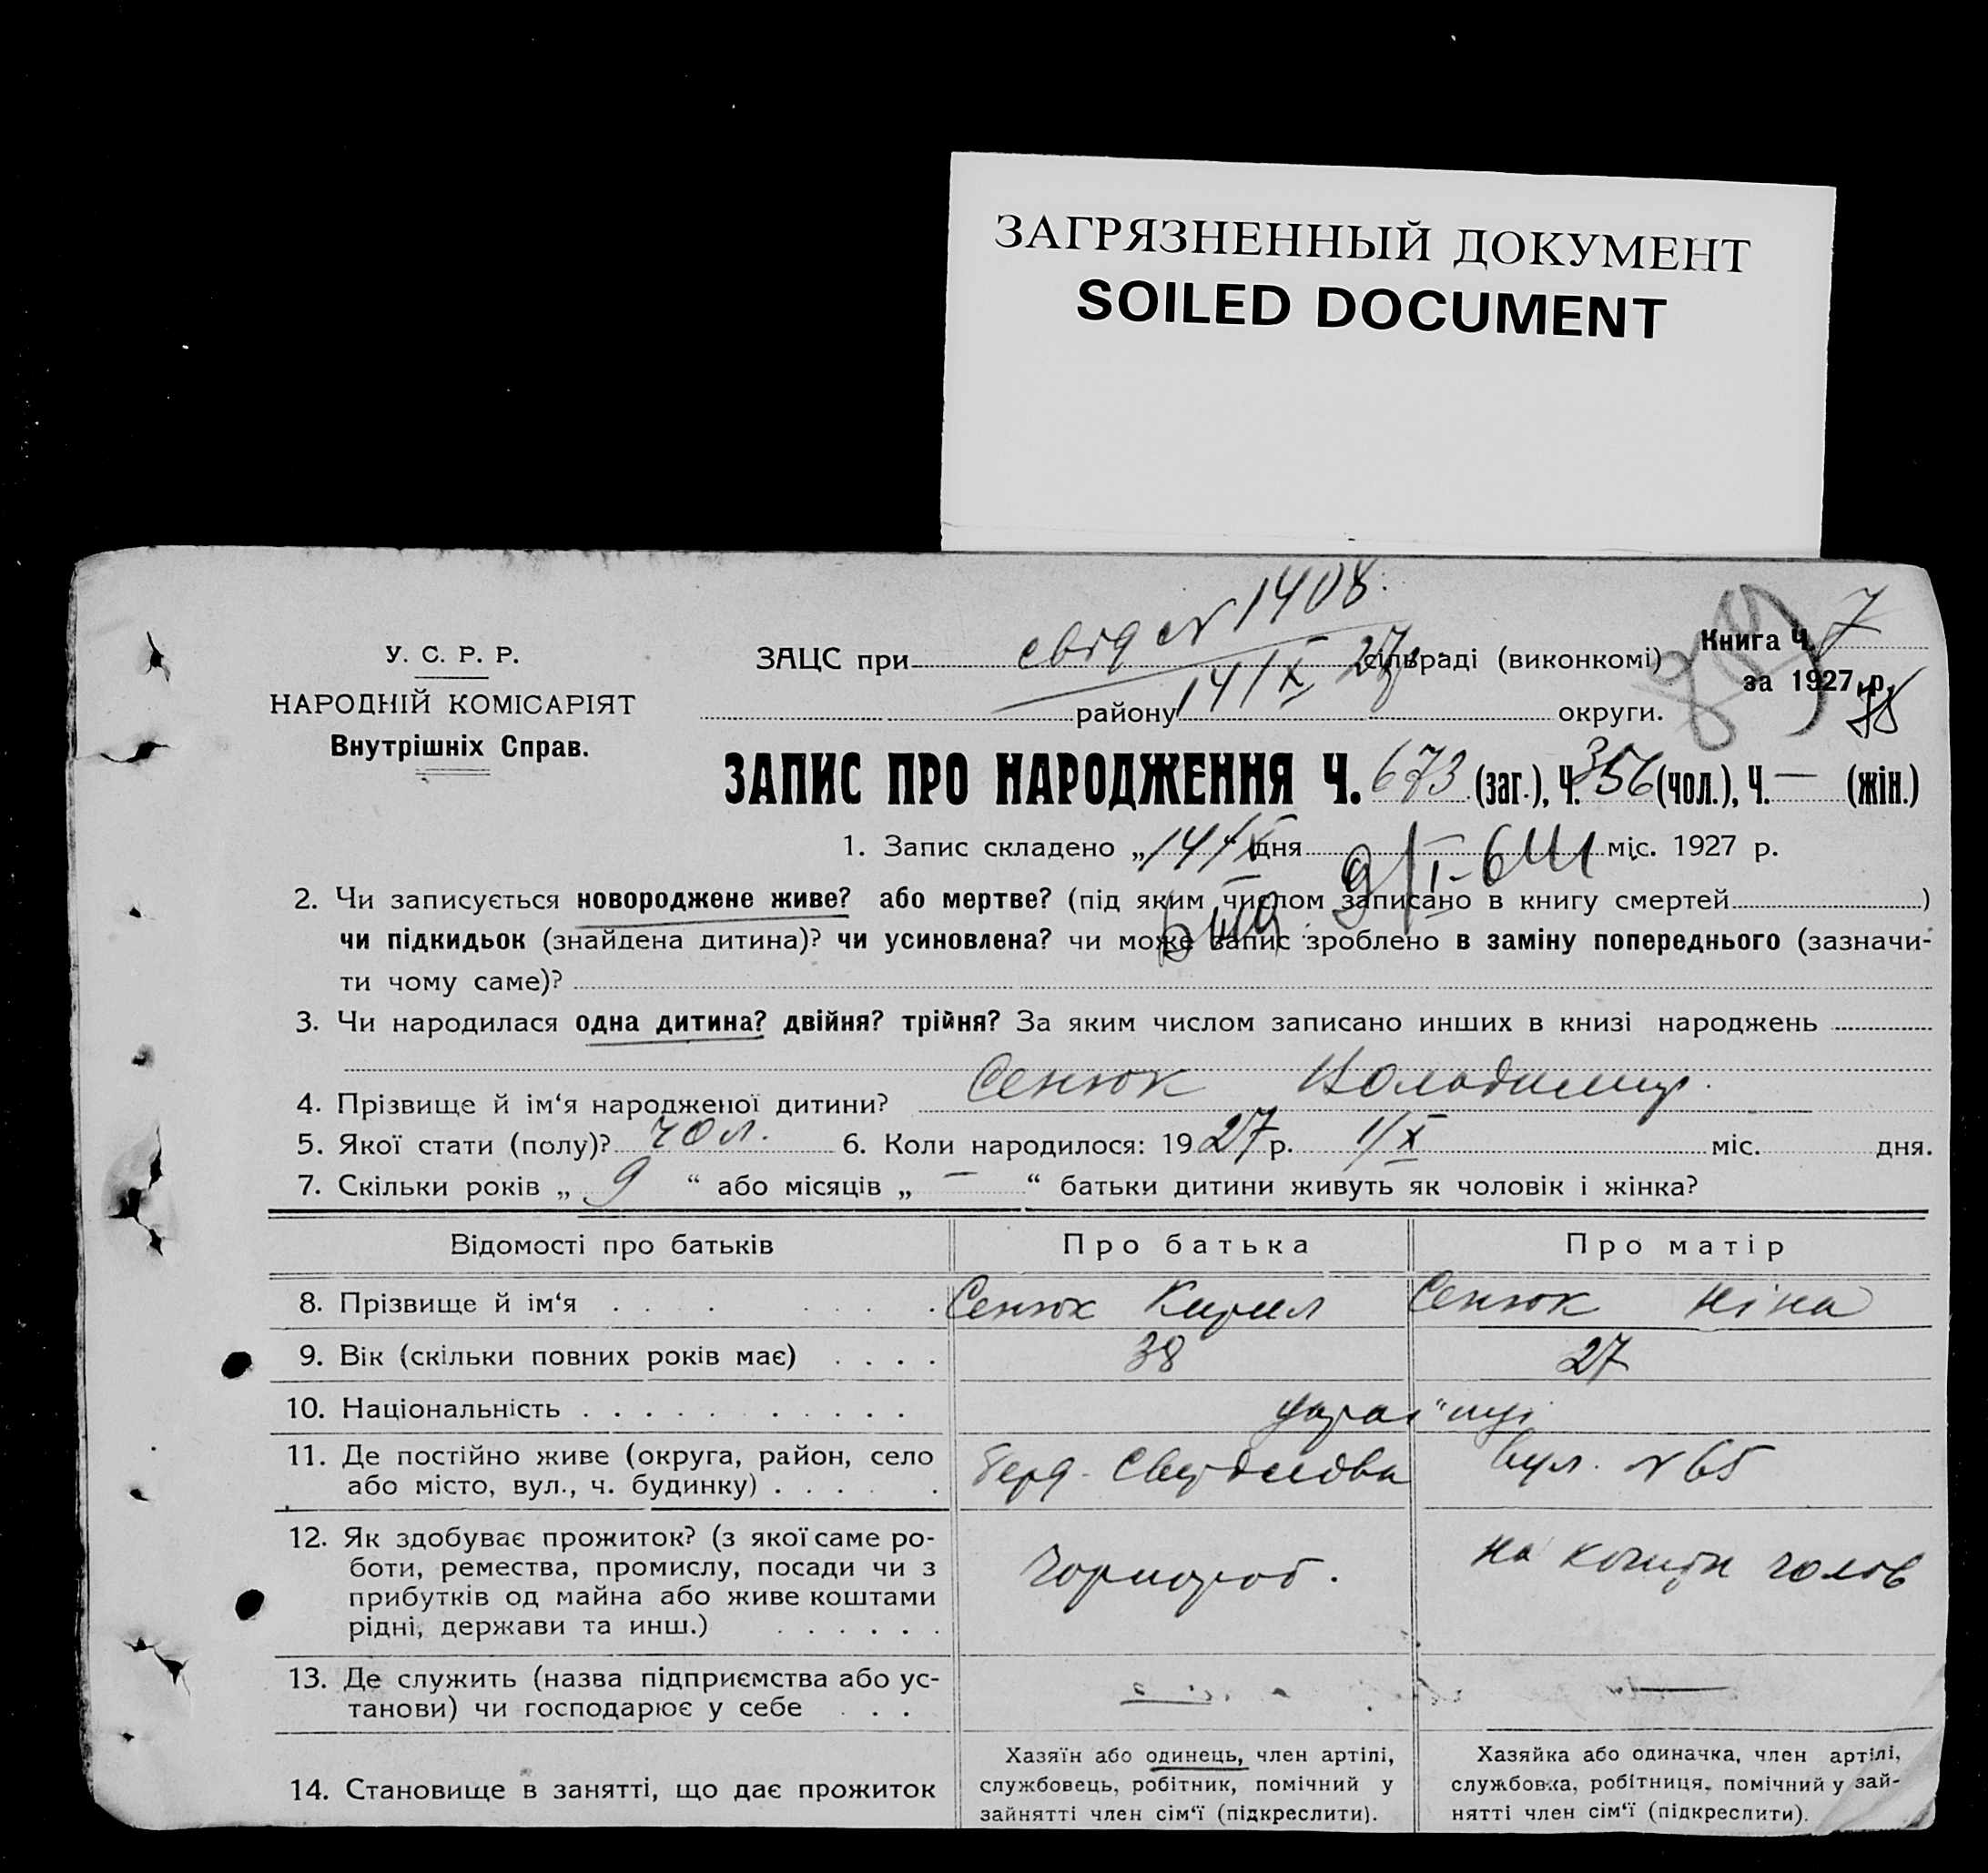 ЗАГРЯЗНЕННЫЙ ДОКУМЕНТ
SOILED DOCUMENT
У. С. Р. Р.
НАРОДНІЙ КОМІСАРІЯТ
Внутрішніх Справ.
свід № 1408.
ЗАЦС при сільраді (виконкомі)
14/IX 27
району округи.
Книга Ч. 7
за 1927 р.
ЗАПИС ПРО НАРОДЖЕННЯ Ч. 673 (заг.), Ч. 356 (чол.), Ч. — (жін.)
1. Запис складено „14/IX“ дня міс. 1927 р.
2. Чи записується новороджене живе? або мертве? (під яким числом записано в книгу смертей )
чи підкидьок (знайдена дитина)? чи усиновлена? чи може запис зроблено в заміну попереднього (зазначи-
ти чому саме)?
3. Чи народилася одна дитина? двійня? трійня? За яким числом записано инших в книзі народжень
4. Прізвище й ім‘я народженої дитини? Сенюк Володимир.
5. Якої стати (полу)? чол. 6. Коли народилося: 1927 р. 1/X міс. дня.
7. Скільки років „ 9 “ або місяців „ — “ батьки дитини живуть як чоловік і жінка?
Відомості про батьків Про батька Про матір
8. Прізвище й ім‘я . . . . . . . Сенюк Кирил Сенюк Ніна
9. Вік (скільки повних років має) . . . . 38 27
10. Національність . . . . . . . . . . . україн"ці
11. Де постійно живе (округа, район, село
або місто, вул., ч. будинку) . . . . . .
Берд. Свердлова вул. № 65
12. Як здобуває прожиток? (з якої саме ро-
боти, ремества, промислу, посади чи з
прибутків од майна або живе коштами
рідні, держави та инш.) . . . . . .
Чорнороб. на кошти чолов
13. Де служить (назва підприємства або ус-
танови) чи господарює у себе . . .
— —
14. Становище в занятті, що дає прожиток
Хазяїн або одинець, член артілі,
службовець, робітник, помічний у
зайнятті член сім‘ї (підкреслити).
Хазяйка або одиначка, член артілі,
службовка, робітниця, помічний у зай-
нятті член сім‘ї (підкреслити).